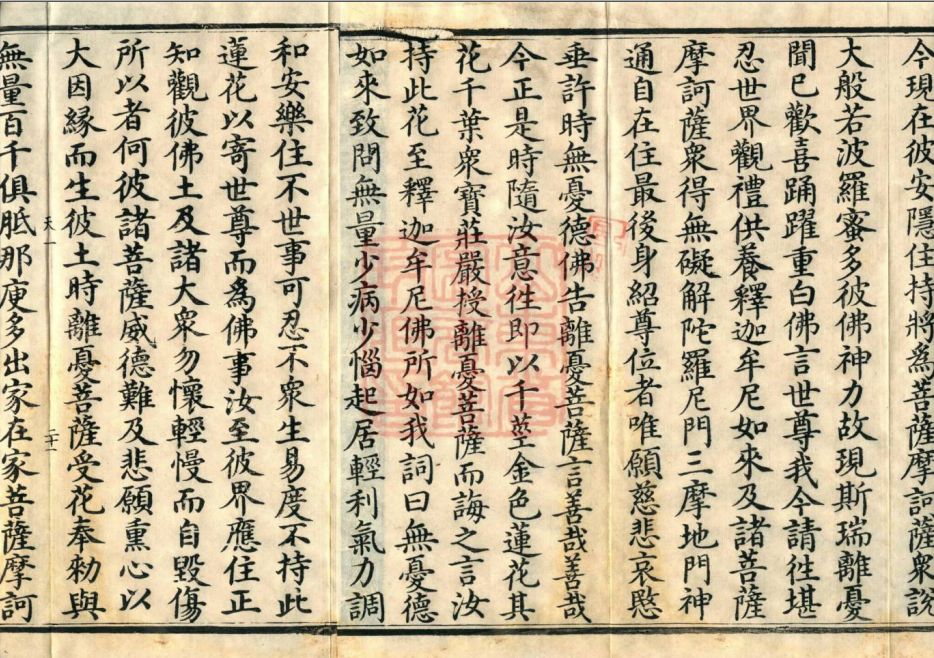 今現在彼安隱住持將爲菩薩摩訶薩衆說
大般若波羅蜜多彼佛神力故現斯瑞離憂
聞已歡喜踊躍重白佛言世尊我今請往堪
忍世界觀禮供養釋迦牟尼如來及諸菩薩
摩訶薩衆得無礙解陀羅尼門三摩地門神
通自在住最後身紹尊位者唯願慈悲哀愍
垂許時無憂德佛告離憂菩薩言善哉善哉
今正是時隨汝意往即以千莖金色蓮花其
花千葉衆寶莊嚴授離憂菩薩而誨之言汝
持此花至釋迦牟尼佛所如我詞曰無憂德
如來致問無量少病少惱起居輕利氣力調
和安樂住不世事可忍不衆生易度不持此
蓮花以寄世尊而爲佛事汝至彼界應住正
知觀彼佛土及諸大衆勿懷輕慢而自毀傷
所以者何彼諸菩薩威德難及悲願熏心以
大因緣而生彼土時離憂菩薩受花奉勑與
天一
二十二
無量百千俱胝那庾多出家在家菩薩摩訶